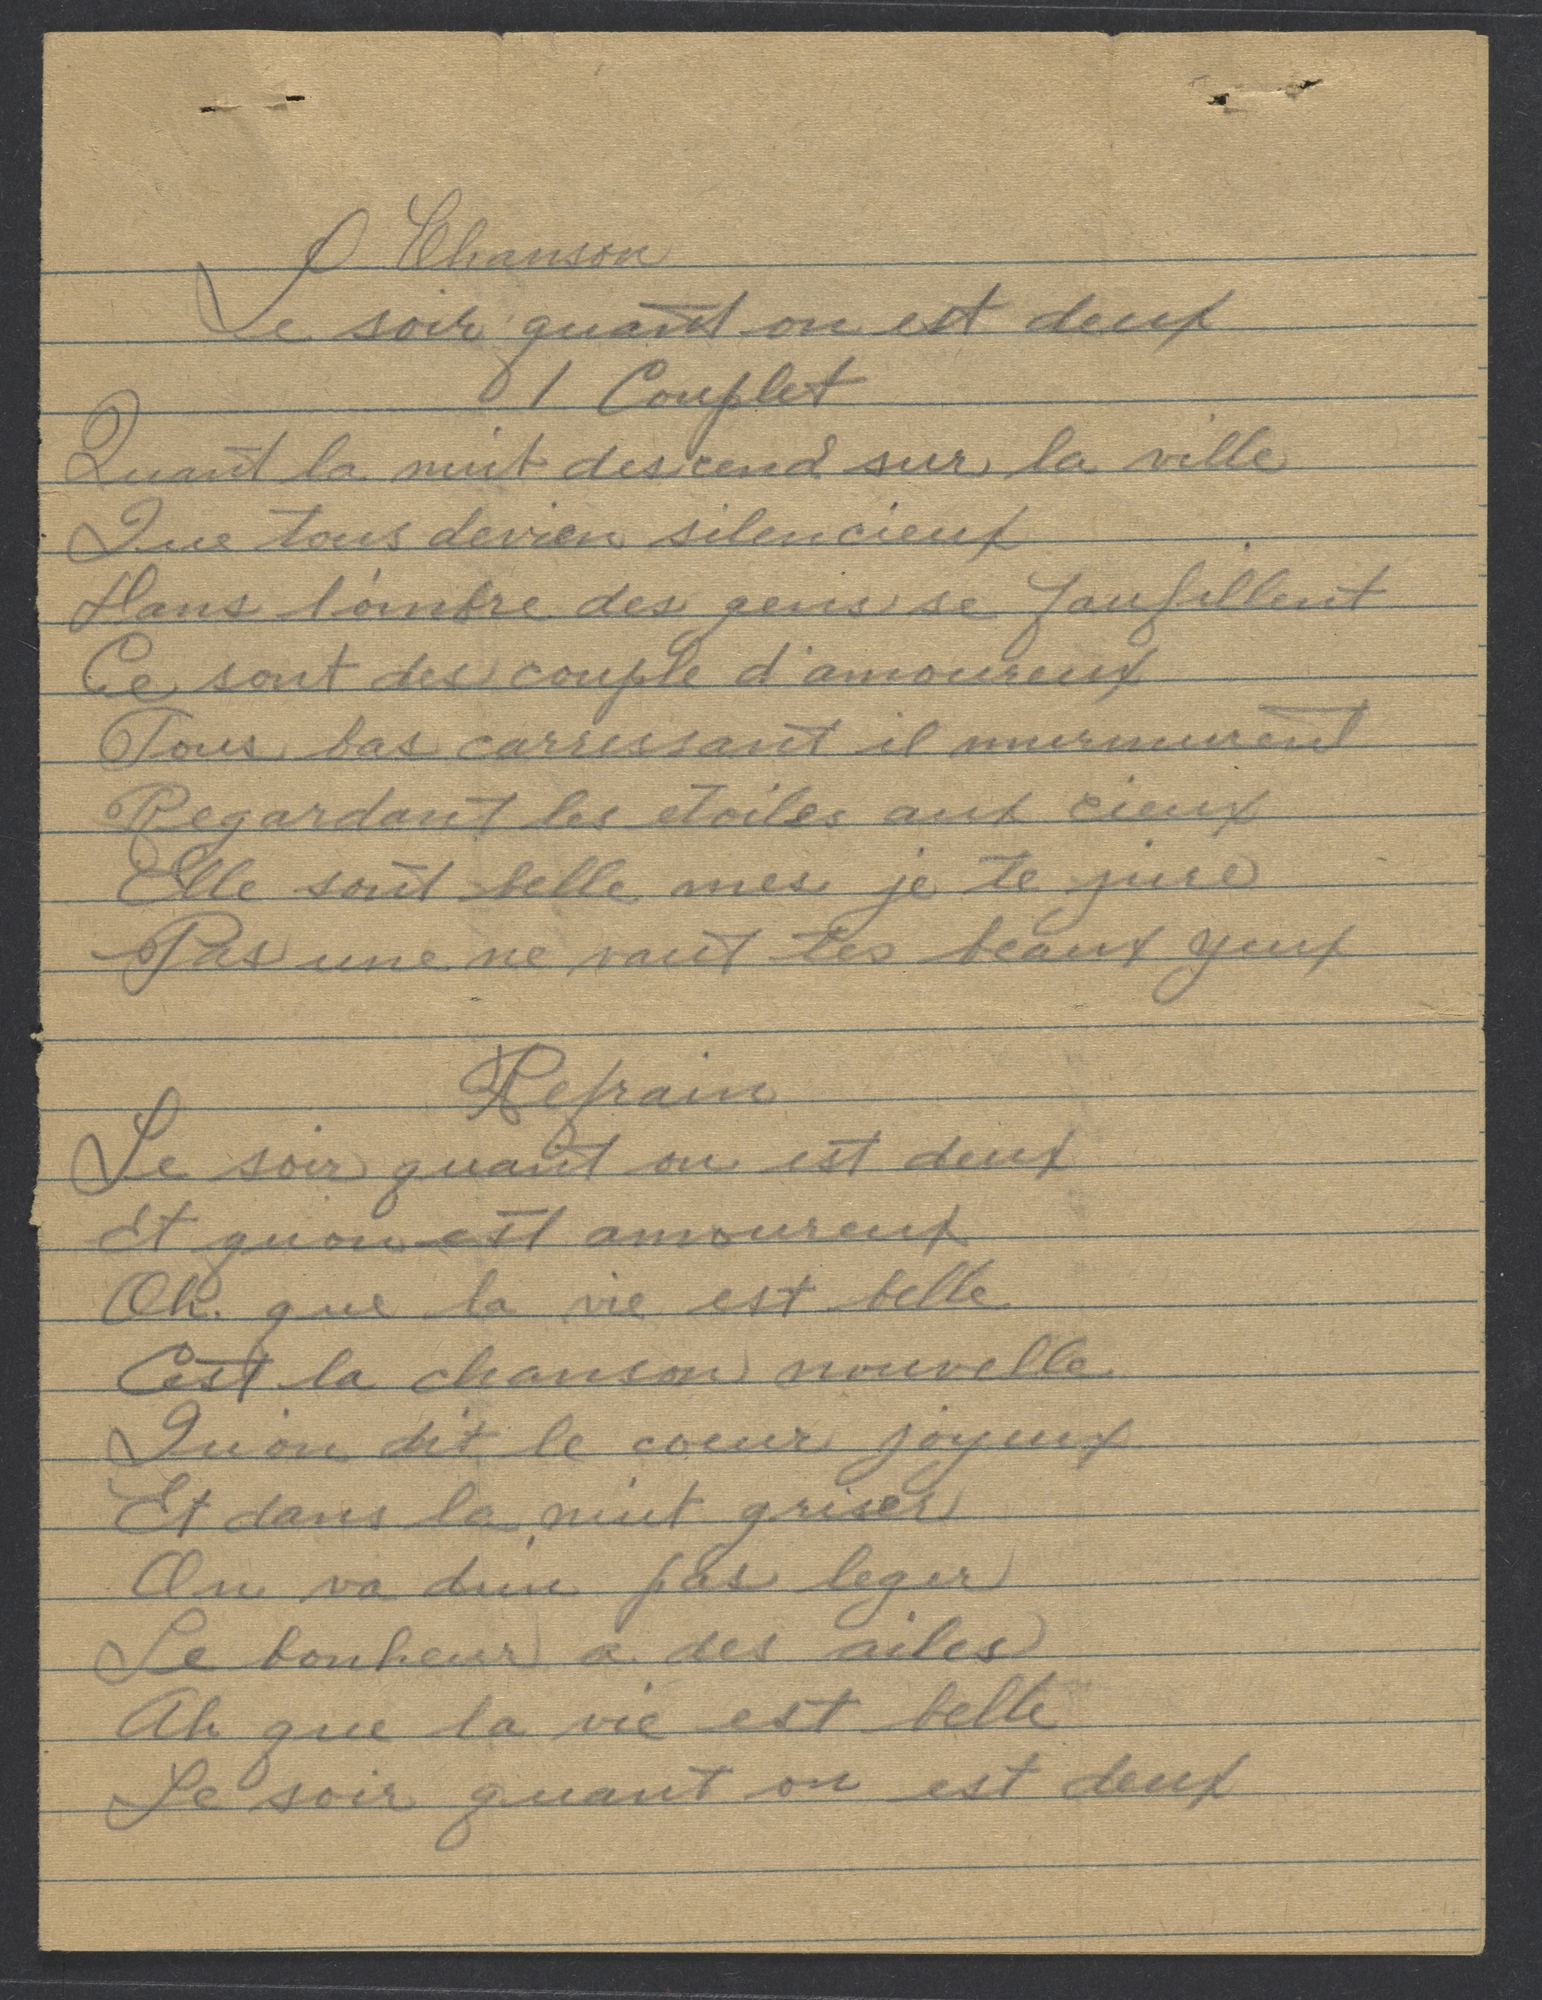 Chanson
Le soir quant on est deux
1 Couplet
Quant la nuit descend sur la ville
Que tous devien silencieux
Dans l'ombre des gens se faufillent
Ce sont des couple d'amoureux
Tous bas carressant il murmurent
Regardant les etoiles aux cieux
Elle sont belle mes je te jure
Pas une ne vaut tes beaux yeux
Refrain
Le soir quant on est deux
Et qu'on est amoureux
Oh. que la vie est belle
Cest la chanson nouvelle
Qu'on dit le coeur joyeux
Et dans la nuit griser
On va d'un pas leger
Le bonheur a des ailes
Ah que la vie est belle
Le soir quant on est deux